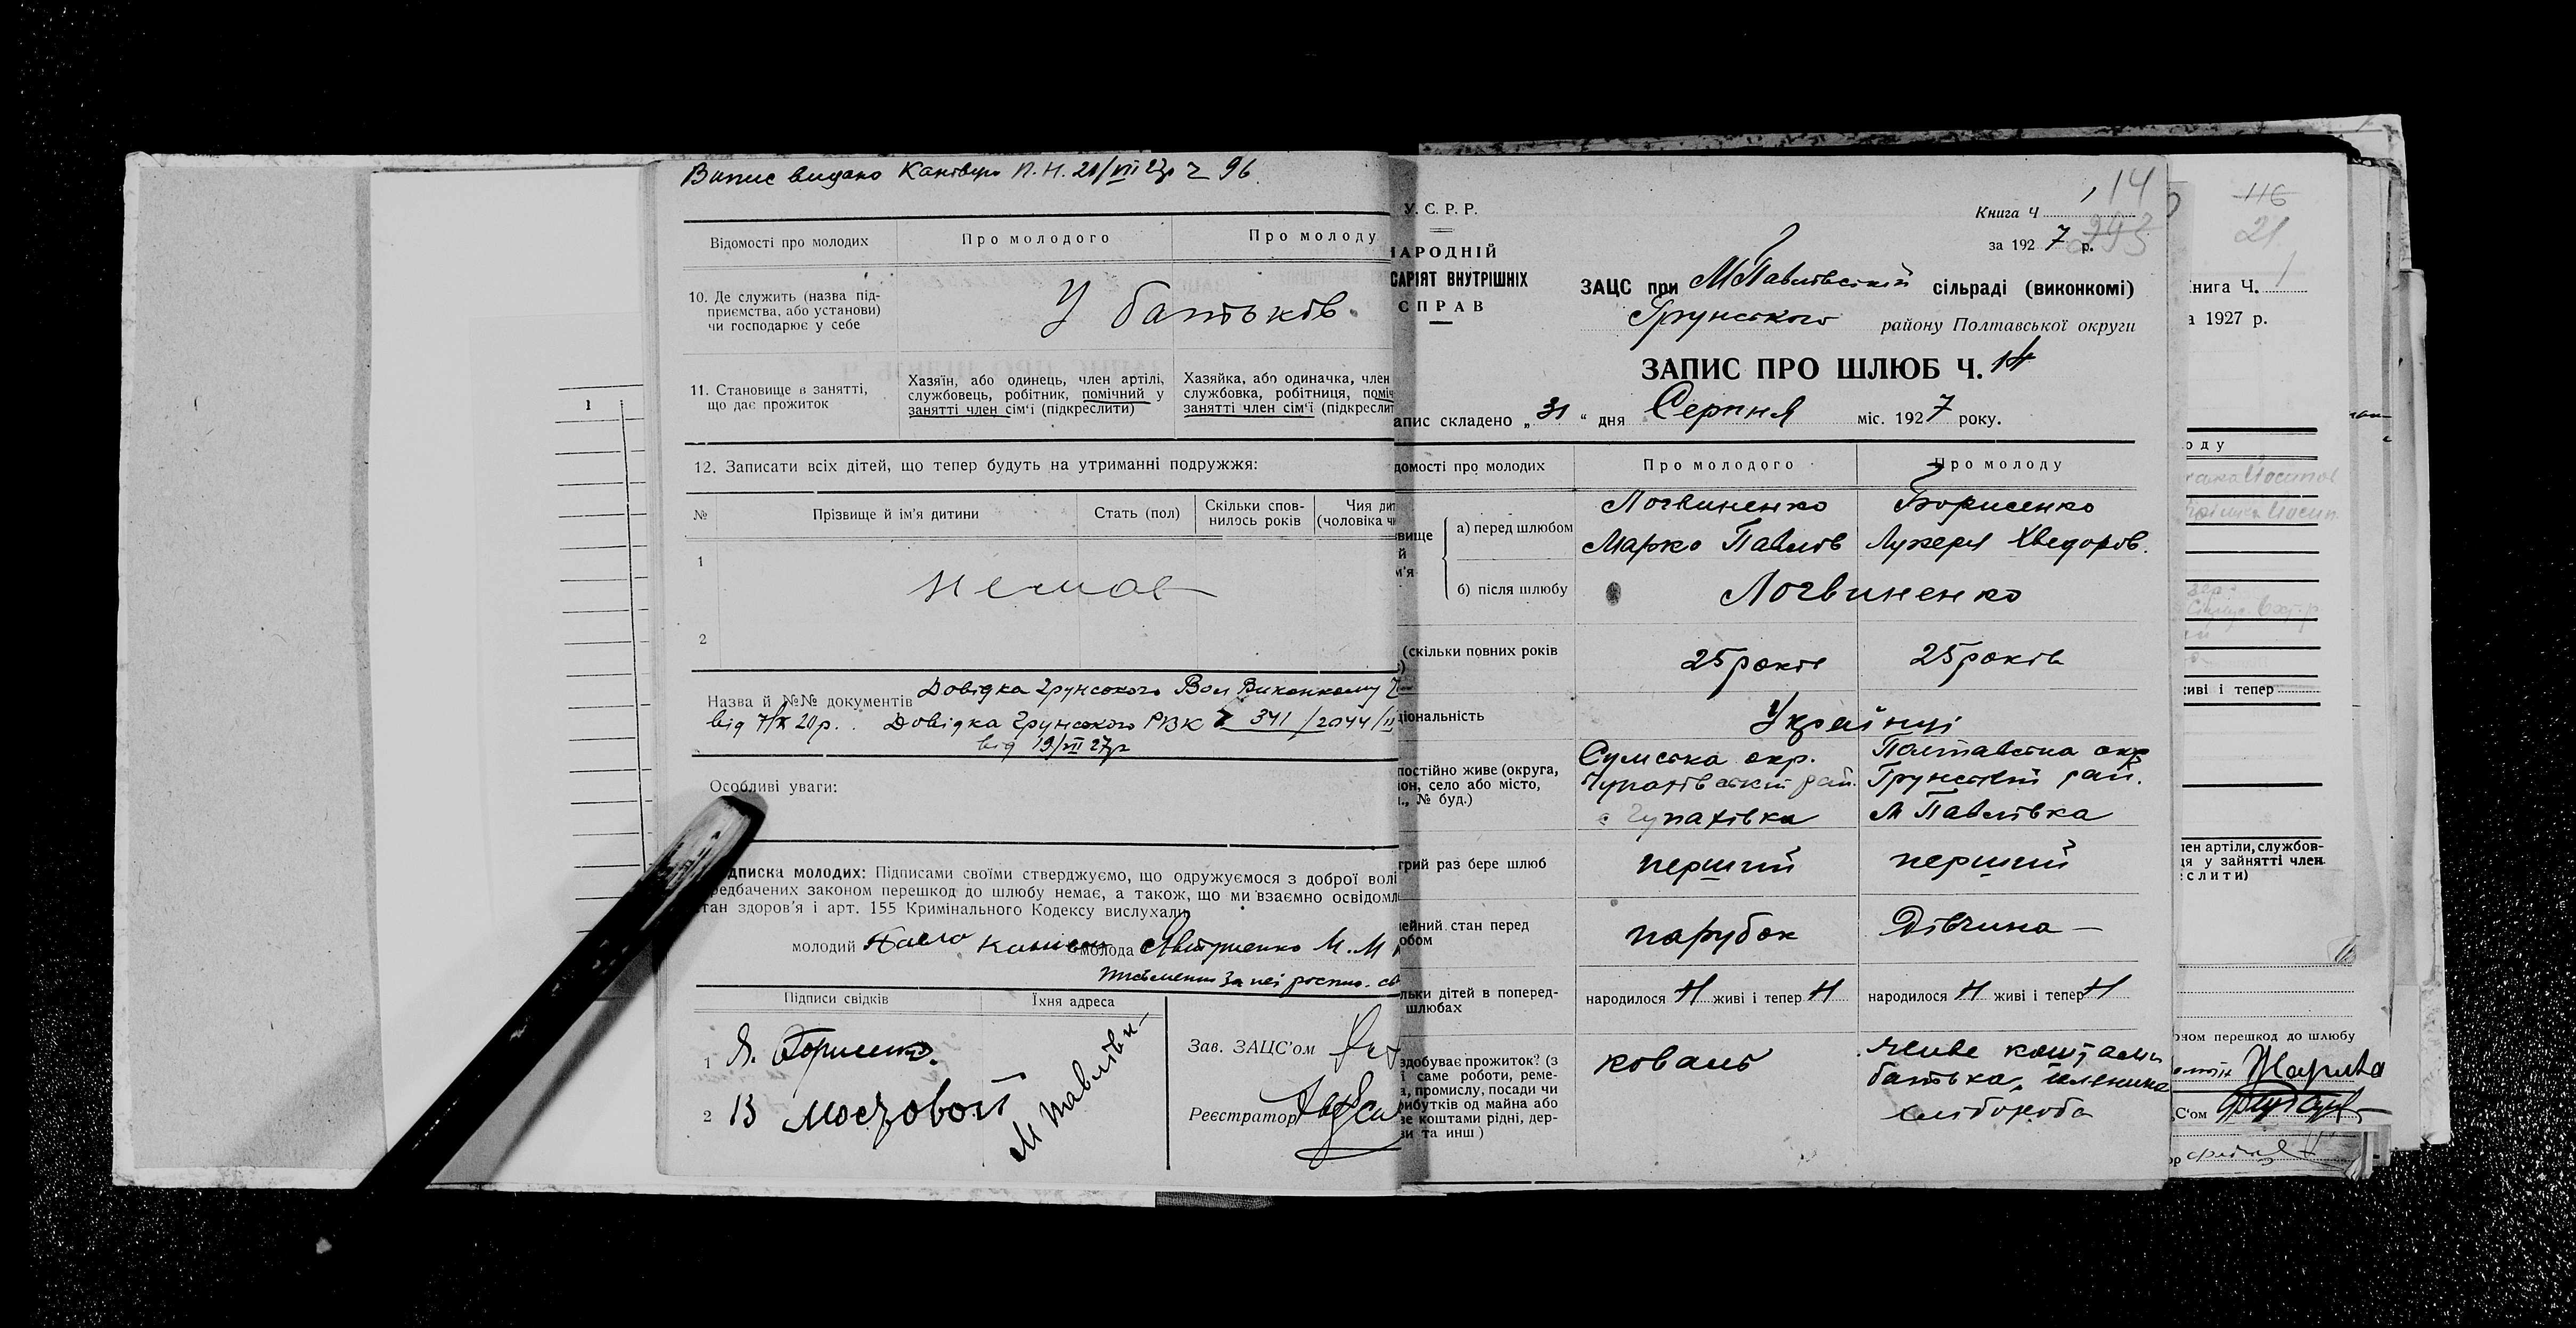 Випис видано 96
Відомості про молодих Про молодого Про молоду
10. Де служить (назва під-
приємства, або установи)
чи господарює у себе
У батьків.
11. Становище в занятті,
що дає прожиток
Хазяїн, або одинець, член артілі,
службовець, робітник, помічний у
занятті член сім'ї (підкреслити)
Хазяйка, або одиначка, член
службовка, робітниця, поміч
занятті член сім'ї (підкреслит
12. Записати всіх дітей, що тепер будуть на утриманні подружжя:
№ Прізвище й ім'я дитини Стать (пол) Скільки спов-
нилось років Чия дит
(чоловіка чи
1
немає
2
Назва й №№ документів Довідка Грунського Вол Виконкому
від 20р. Довідка Грунського РВК 341/2044/
від 19/VII 27р
Особливі уваги:
дписка молодих: Підписами своїми стверджуємо, що одружуємося з доброї волі
редбачених законом перешкод до шлюбу немає, а також, що ми взаємно освідомл
тан здоров'я і арт. 155 Кримінального Кодексу вислухали,
молодий молода М. М
за неї
Підписи свідків Їхня адреса
1 Я. Борисенко.
2 В Мосьовой
М Павлівка
Зав. ЗАЦС'ом
Реєстратор
У. С. Р. Р.
НАРОДНІЙ
САРІЯТ ВНУТРІШНІХ
СПРАВ
14
Книга Ч
293
за 1927 р.
ЗАЦС при МПавлівській сільраді (виконкомі)
Грунського району Полтавської округи
ЗАПИС ПРО ШЛЮБ Ч. 14
апис складено „31“ дня Серпня міс. 1927 року.
домості про молодих Про молодого Про молоду
вище
й
м'я
а) перед шлюбом
Логвиненко
Марко Павлів
Борисенко
Лукеря Хведоров.
б) після шлюбу
Логвиненко
(скільки повних років
25 років 25 років
ціональність
Українці
постійно живе (округа,
он, село або місто,
., № буд.)
Сумська окр.
Чупахівський рай.
с Чупахівка
Полтавська окр
Грунський рай.
М Павлівка
трий раз бере шлюб
перший перший
ейний стан перед
обом
парубок Дівчина
льки дітей в поперед-
шлюбах
народилося Н живі і тепер Н
народилося Н живі і тепер Н
здобуває прожиток? (з
і саме роботи, реме-
а, промислу, посади чи
рибутків од майна або
ве коштами рідні, дер-
ви та инш)
коваль
живе коштами
батька,
хлібороба
116
21
нига Ч. 1
а 1927 р.
оду
иві і тепер
лен артіли, службов-
ця у зайнятті член
слити)
ном перешкод до шлюбу
С'ом
ор
1